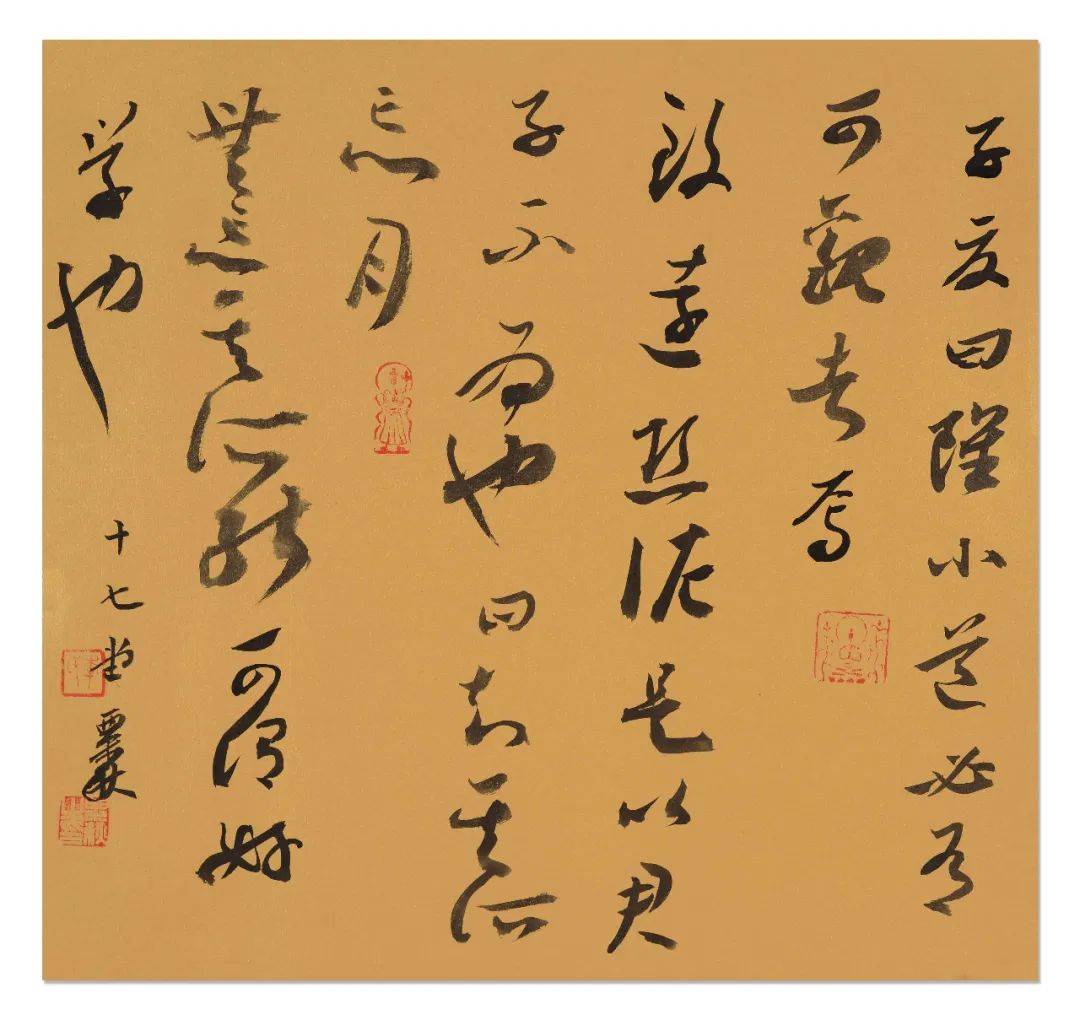 子夏曰雖小道必有
可觀者焉
致遠恐泥是以君
子不為也日知其所
忘月
無忘其所能可謂好
学也
十七堂